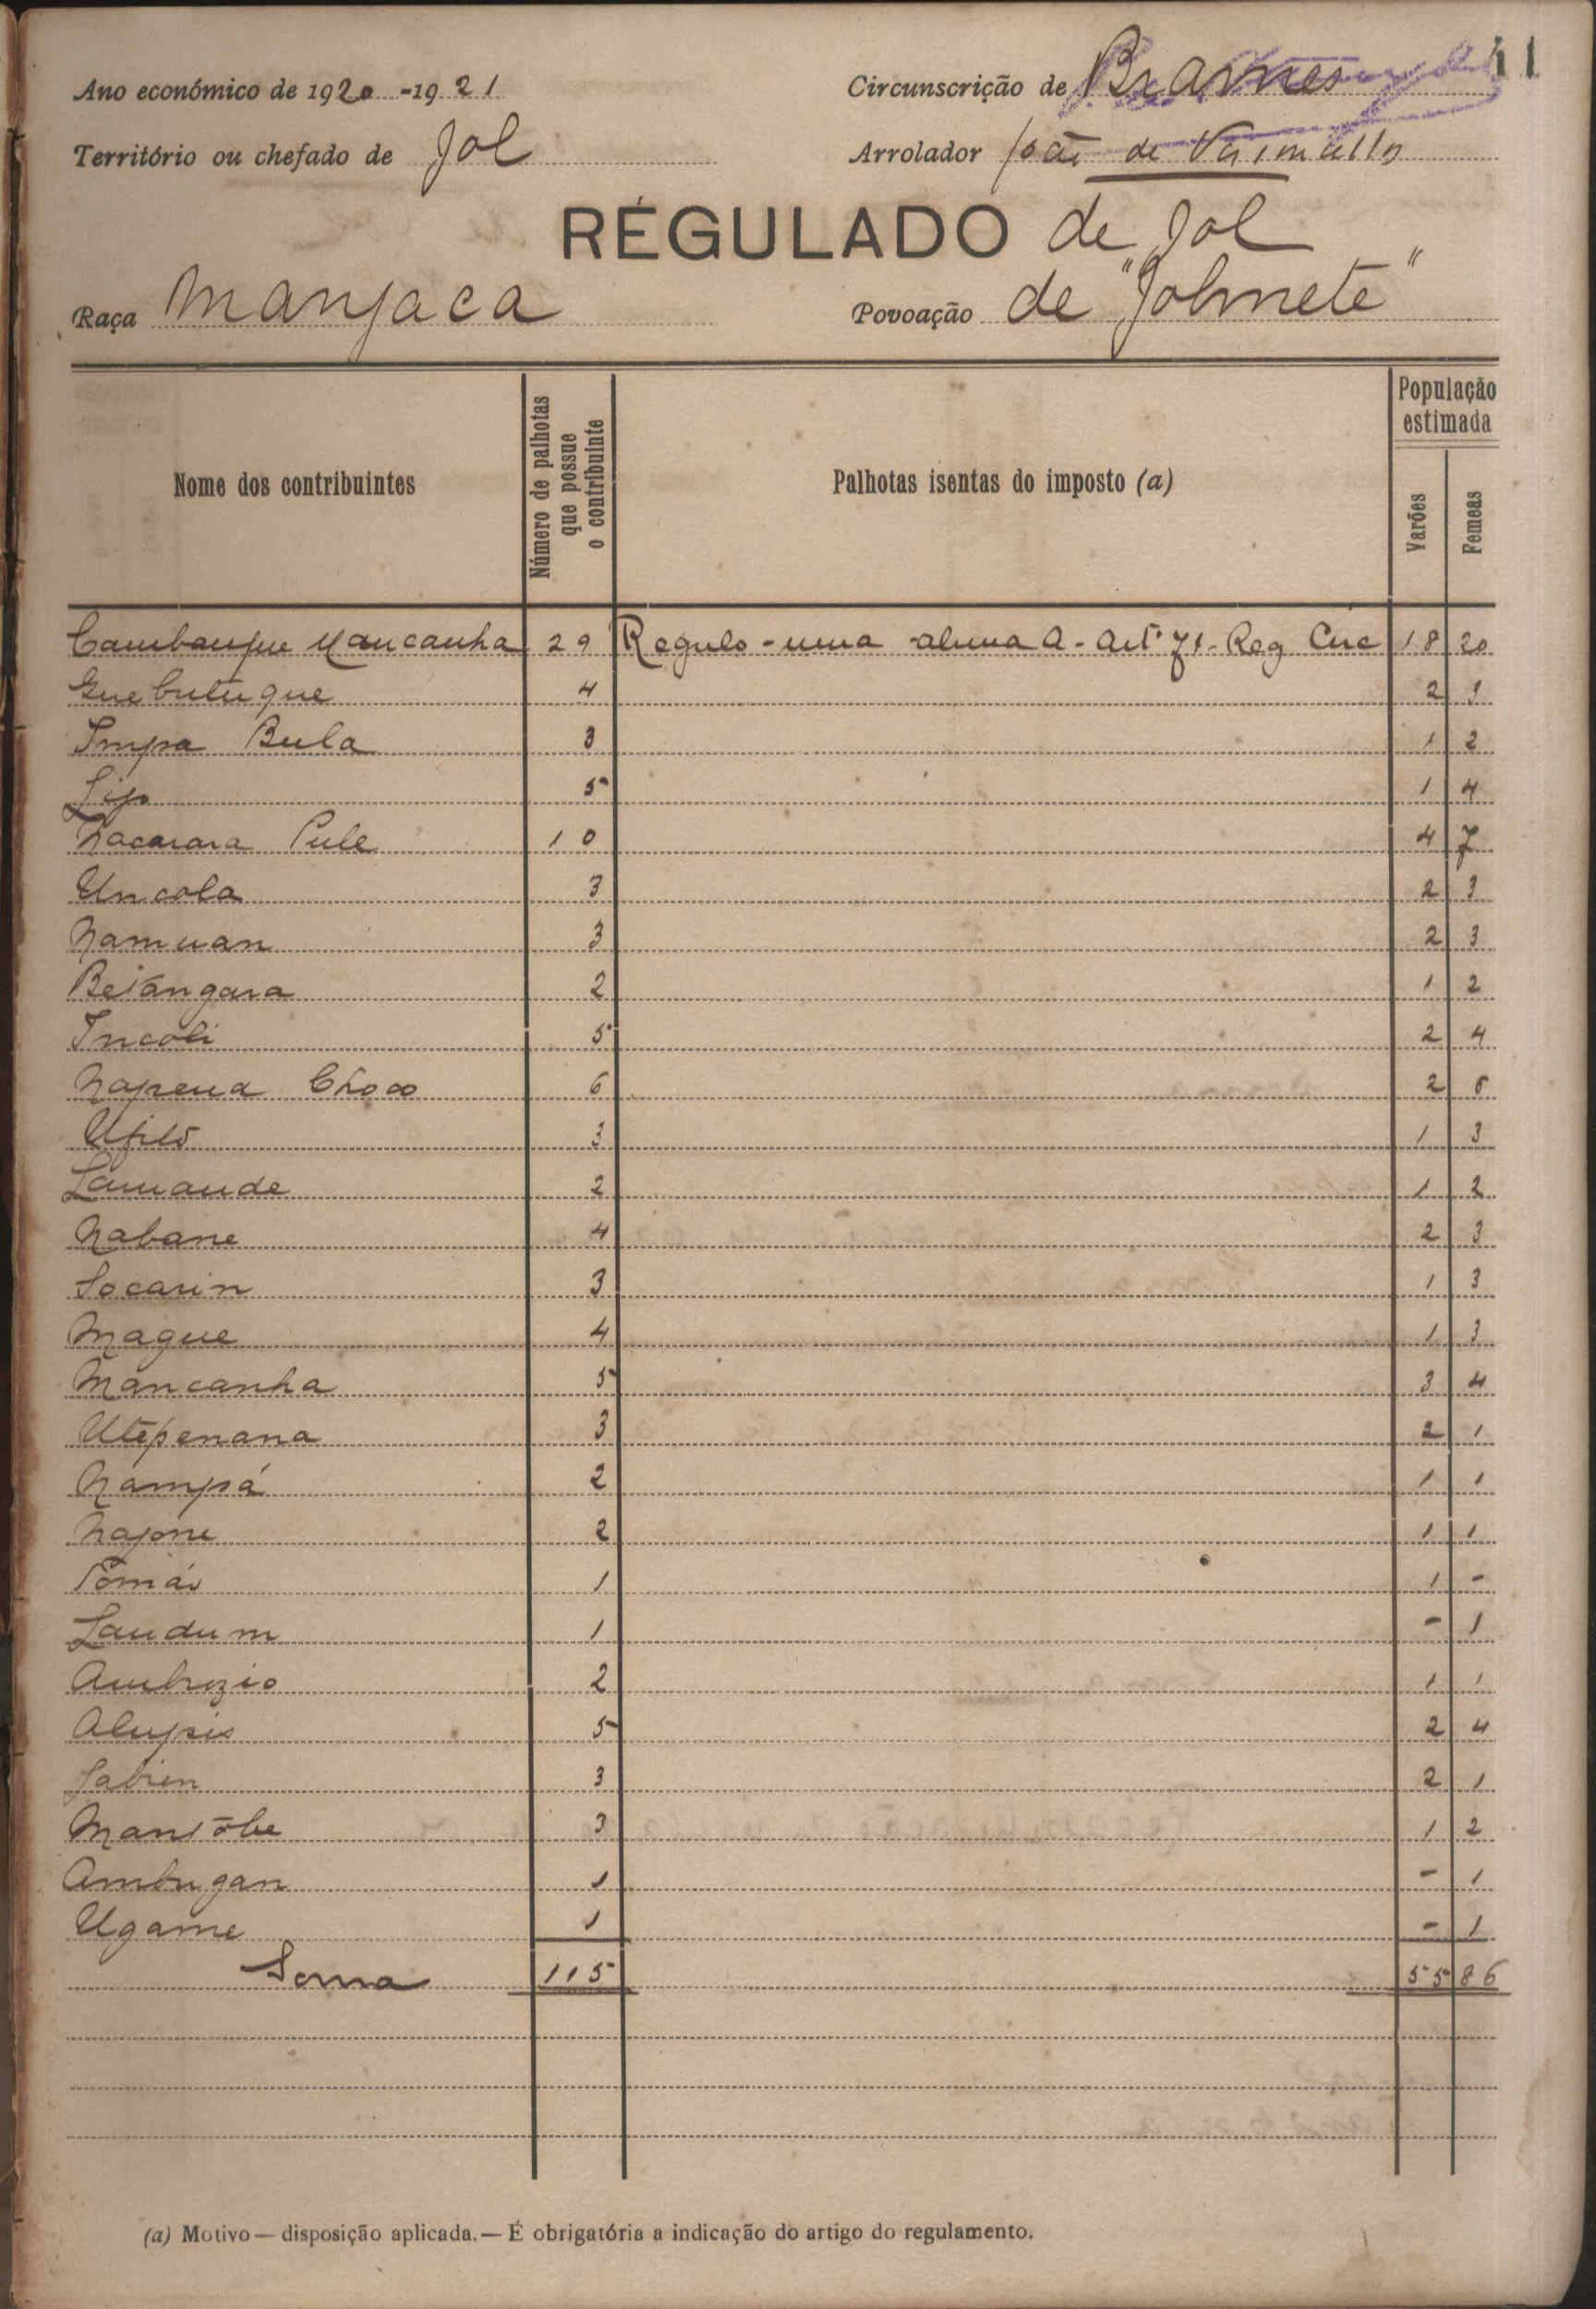 11
Ano económico de 1920-1921
Circunscrição de Brames
Território ou chefado de Jol
Arrolador João de
RÉGULADO de Jol
Raça Manjaca
Povoação de "Jolmete"
Nome dos contribuintes
Número de palhotas que possue o contribuinte
Palhotas isentas do imposto (a)
População estimada
Varões
Femeas
Cambanque Mancanha 29 Regulo - uma alinea A - Artº 71 - Reg Circ 18 20
4 2 3
Impa Bula 3 1 2
5 1 4
Nacarara Pule 10 4 7
Uncola 3 2 3
Namuan 3 2 3
Betangara 2 1 2
Incoli 5 2 4
Napena Choco 6 2 6
3 1 3
Lamande 2 1 2
Nabane 4 2 3
Socarin 3 1 3
Mague 4 1 3
Mancanha 5 3 4
Utépenana 3 2 1
Nampá 2 1 1
2 1 1
Tomás 1 1 -
Landum 1 - 1
Ambrozio 2 1 1
5 2 4
Sabien 3 2 1
3 1 2
Ambugan 1 - 1
Ugame 1 - 1
Soma 115 55 86
(a) Motivo — disposição aplicada. — É obrigatória a indicação do artigo do regulamento.